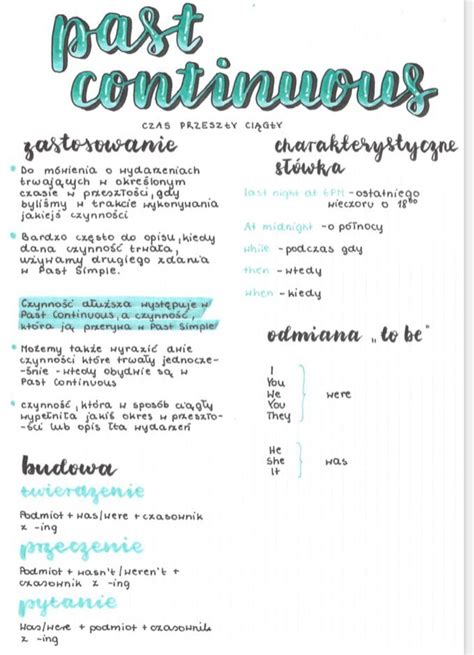 past
continuous
CZAS PRZESZŁY CIĄGŁY
zastosowanie
• Do mówienia o wydarzeniach
trwających w określonym
czasie w przeszłości, gdy
byliśmy w trakcie wykonywania
jakiejś czynności
• Bardzo często do opisu, kiedy
dana czynność trwała,
używamy drugiego zdania
w Past Simple.
Czynność dłuższa występuje w
Past Continuous, a czynność,
która ją przerywa w Past Simple
• Możemy także wyrazić dwie
czynności które trwały jednocze-
-śnie - wtedy obydwie są w
Past Continuous
• czynność, która w sposób ciągły
wypełniła jakiś okres w przeszło-
-ści lub opis tła wydarzeń
budowa
twierdzenie
Podmiot + was/were + czasownik
z -ing
przeczenie
Podmiot + wasn't/weren't +
czasownik z -ing
pytanie
Was/were + podmiot + czasownik
z -ing
charakterystyczne
słówka
last night at 6PM - ostatniego
wieczoru o 18⁰⁰
At midnight - o północy
while - podczas gdy
then - wtedy
when - kiedy
odmiana „to be"
I
You
We
You
They
were
He
She
It
was